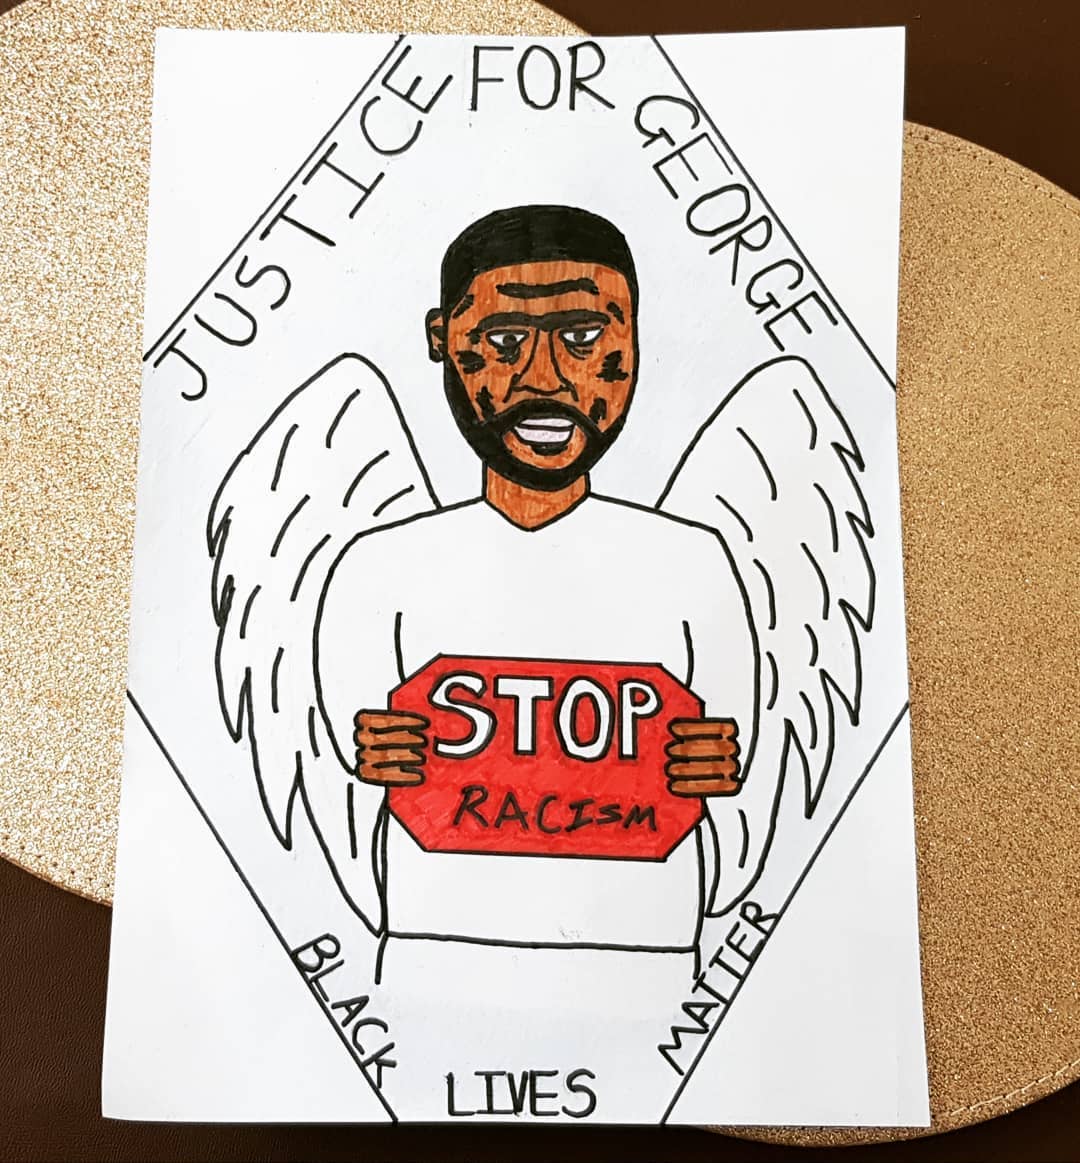 JUSTICE FOR GEORGE
STOP
RACISM
BLACK LIVES MATTER